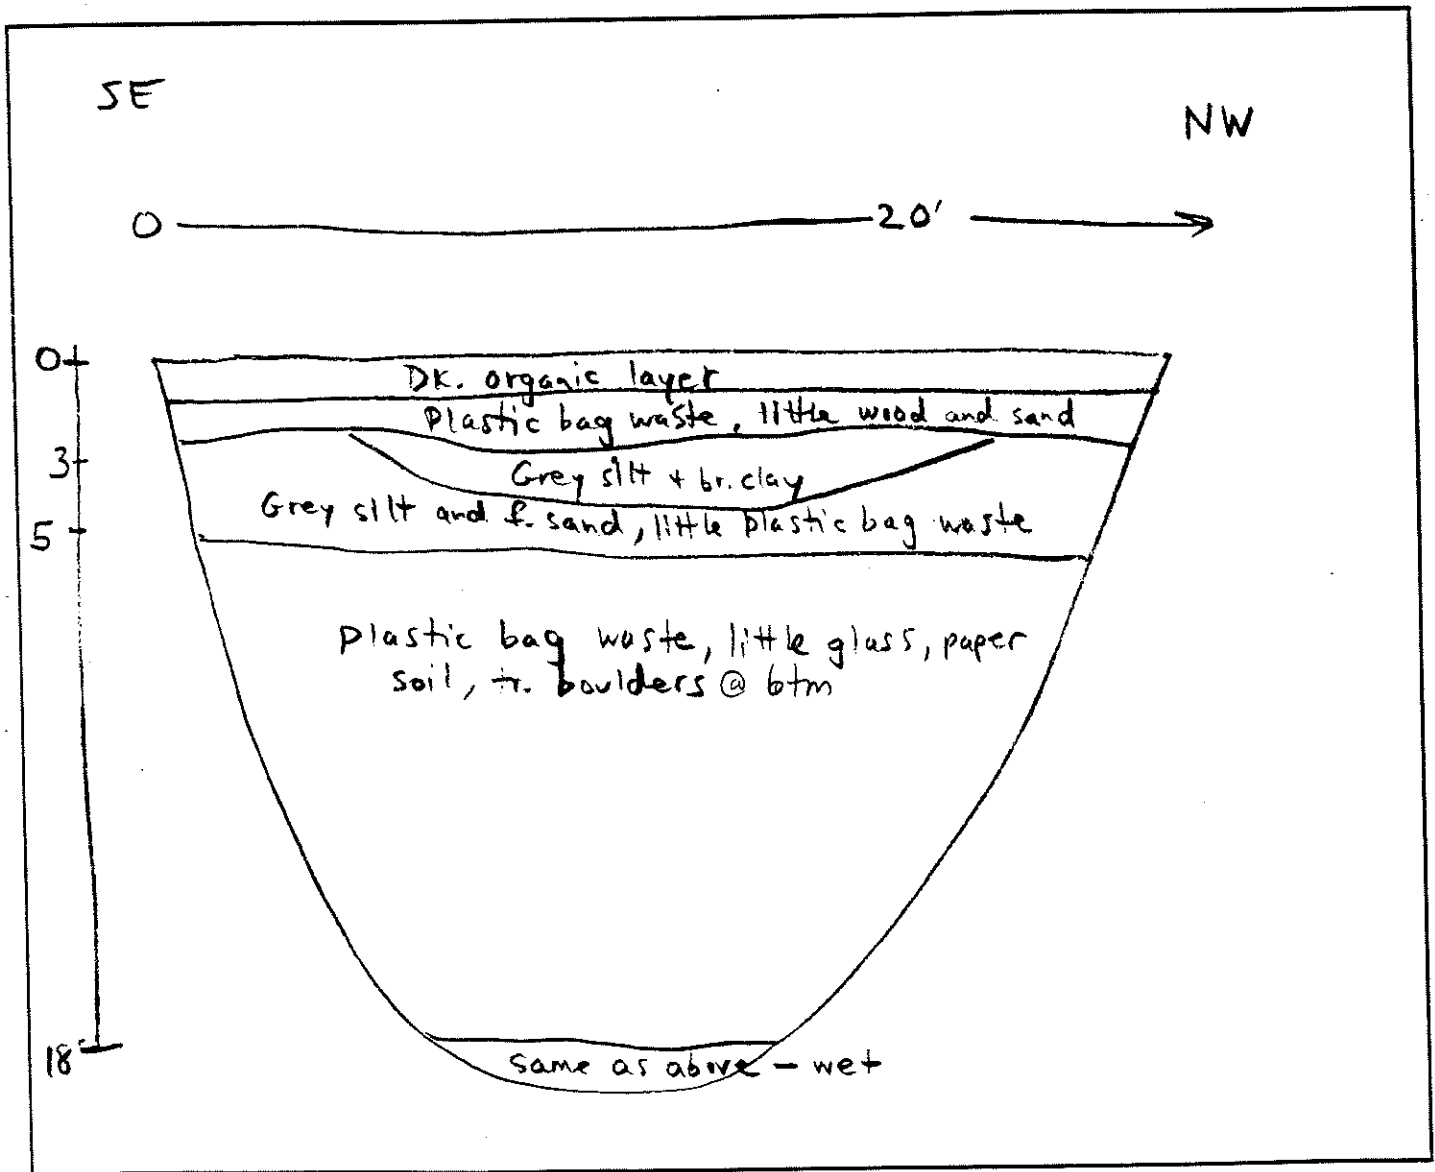 SE
NW
0 20'
0
DK. organic layer
Plastic bag waste, little wood and sand
3
Grey silt + br. clay
Grey silt and f. sand, little plastic bag waste
5
plastic bag waste, little glass, paper
soil, tr. boulders @ btm
18
same as above - wet